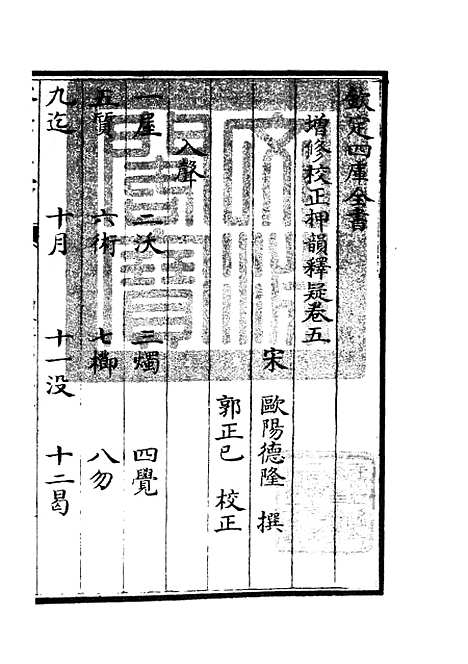 欽定四庫全書
增修校正押韻釋疑卷五
宋 歐陽德隆 撰
郭正己 校正
入聲
一屋 二沃 三燭 四覺
五質 六術 七櫛 八勿
九迄 十月 十一没 十二曷